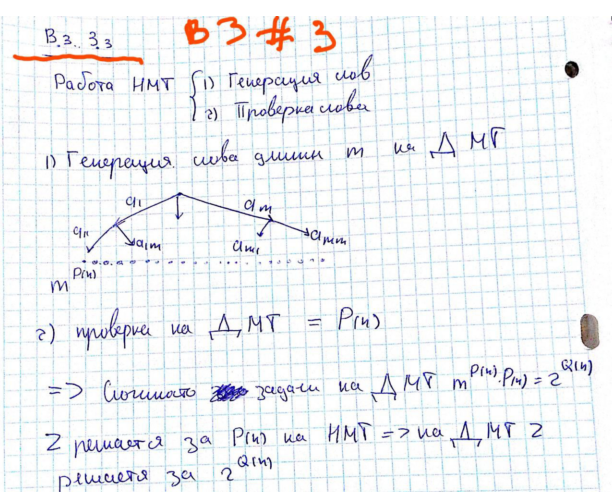 В.з. 3.з
ВЗ # 3
Работа НМТ { 1) Генерация слов
2) Проверка слова
1) Генерация слова длины m на ДМТ
a₁ aₘ
a₁₁ a₁ₘ aₘ₁ aₘₘ
m^P(n)
2) проверка на ДМТ = P(n)
=> Сложность задачи на ДМТ m^P(n)·P(n) = 2^Q(n)
Z решается за P(n) на НМТ => на ДМТ Z
решается за 2^Q(n)